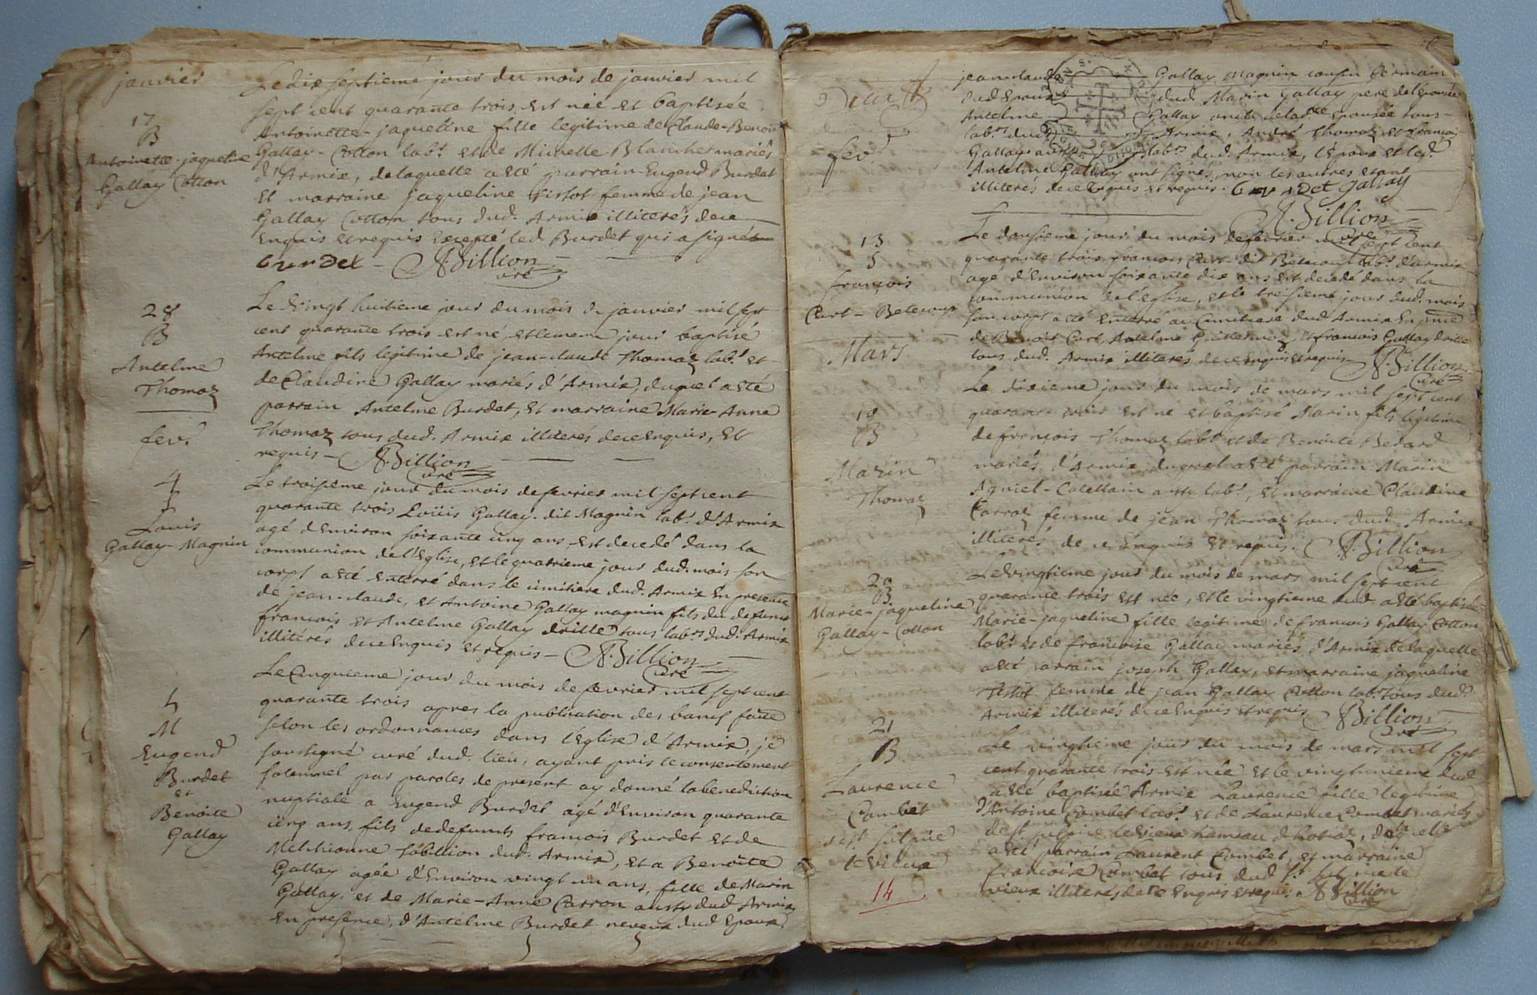 janvier
Le dix septieme jour du mois de janvier mil
sept cent quarante trois est née et baptisée
17
B
Antoinette-jaqueline
Gallay Cotton
Antoinette-jaqueline fille legitime de Claude-Benoit
Gallay-Cotton labr. et de Michelle Blanchet mariés
d'Armix, de laquelle a esté parrain Eugend Burdet
et marraine jaqueline Tistot femme de jean
Gallay Cotton tous dud. Armix illiterés de ce
Enquis et requis Excepté led. Burdet qui a signé
Burdet - A. Billion
curé
28
B
Anteline
Thomaz
Le vingt huitieme jour du mois de janvier mil sept
cent quarante trois est né et le meme jour baptisé
Anteline fils legitime de jean-claude Thomaz labr. et
de Claudine Gallay mariés d'Armix, duquel a esté
parrain Antelme Burdet, et marraine Marie-Anne
Thomaz tous dud. Armix illiterés de ce Enquis, et
requis - A. Billion
curé
fevr.
4
Louis
Gallay-Magnin
Le troisieme jour du mois de fevrier mil sept cent
quarante trois Loüis Gallay dit Magnin labr. d'Armix
agé d'Environ soixante cinq ans est decedé dans la
communion de l'Eglise, et le quatrieme jour dud. mois son
corps a esté enterré dans le cimitiere dud. Armix En presence
de jean-claude, et Antoine Gallay magnin fils du defunct
francois et Anteline Gallay drille tous labrs. dud. Armix
illiterés de ce Enquis et requis - A. Billion
curé
5
M
Eugend
Burdet
et
Benoite
Gallay
Le Cinquieme jour du mois de fevrier mil sept cent
quarante trois apres la publication des bancs faite
selon les ordonnances dans l'Eglise d'Armix, je
soussigné curé dud. lieu, ayant pris le consentement
solemnel par paroles de present ay donné la benediction
nuptiale a Eugend Burdet agé d'Environ quarante
cinq ans, fils de defunts francois Burdet et de
dud. Armix, et a Benoite
Gallay agée d'Environ vingt un ans, fille de Marin
Gallay, et de Marie-Anne Carron aussy dud. Armix
En presence, d'Antelme Burdet neveux dud. Epoux,
fevr.
jean claude Gallay Magnin cousin Germain
dud. Epoux dud. Marin Gallay pere de l'epouse
Anteline Gallay
labrs. dud. Armix, André Thomaz et francois
Gallay labrs. dud. Armix, l'Epoux et led.
Anteline Gallay ont signés, non les autres etant
illiterés de ce Enquis et requis. Burdet Gallay
A. Billion
curé
13
S
francois
Curt-Beteoux
Le douzieme jour du mois de fevrier mil sept cent
quarante trois francois Curt dit labr. d'Armix
agé d'Environ soixante dix ans est decedé dans la
communion de l'Eglise, et le treisieme jour dud. mois
son corps a esté enterré au cimitiere dud. Armix En presence
de Benoit Curt, Anteline et francois Gallay drille
tous dud. Armix illiterés de ce enquis et requis A. Billion
curé
Mars
18
B
Marin
Thomaz
Le dixieme jour du mois de mars mil sept cent
quarante trois est né et baptisé Marin fils legitime
de francois Thomaz labr. et de Benoite Bedard
mariés d'Armix duquel a esté parrain Marin
labr., et marraine Claudine
Carraz femme de jean Thomaz tous dud. Armix
illiterés de ce Enquis et requis. A. Billion
curé
20
B
Marie-jaqueline
Gallay-Cotton
Le vingtieme jour du mois de mars mil sept cent
quarante trois est née, et le vingtieme dud. a esté baptisée
Marie-jaqueline fille legitime de francois Gallay Cotton
labr. et de francoise Gallay mariés d'Armix de laquelle
a esté parrain joseph Gallay, et marraine jaqueline
Tistot femme de jean Gallay Cotton labr. tous dud.
Armix illiterés de ce Enquis et requis A. Billion
curé
21
B
Laurence
Combet
de st. hilaire
le vieux
Le vingtieme jour du mois de mars mil sept
cent quarante trois est née et le vingtunieme dud.
a esté baptisée Armix Laurence fille legitime
d'Antoine Combet labr. et de Laurence Combet mariés
de laquelle
a esté parrain Laurent Combet, et marraine
francoise Combet tous dud. st. hilaire le
vieux illiterés de ce Enquis et requis. A. Billion
curé
14